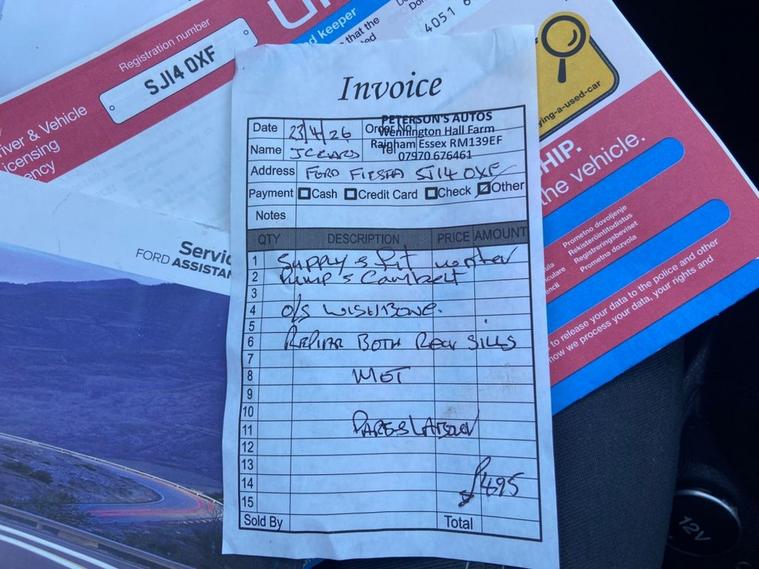 Registration number
SJ14 OXF
Driver & Vehicle
Licensing
Agency
keeper
that the
4051 6
ying-a-used-car
HIP.
the vehicle.
Prometno dovoljenje
Rekisteröintitodistus
Registreringsbeviset
Prometna dozvola
to release your data to the police and other
how we process your data, your rights and
Service
FORD ASSISTAN
12V
Invoice
PETERSON'S AUTOS
Wennington Hall Farm
Rainham Essex RM139EF
Tel 07970 676461
Date 23/4/26 Order No.
Name
Address FORD FIESTA SJ14 OXF
Payment Cash Credit Card Check Other
Notes
QTY DESCRIPTION PRICE AMOUNT
1 Supply & Fit water
2 Pump & Cambelt
3
4 O/S WISHBONE.
5
6 REPIAR BOTH REAR SILLS
7
8 MOT
9
10
11 PARTS LABOUR
12
13
14 £495
15
Sold By Total